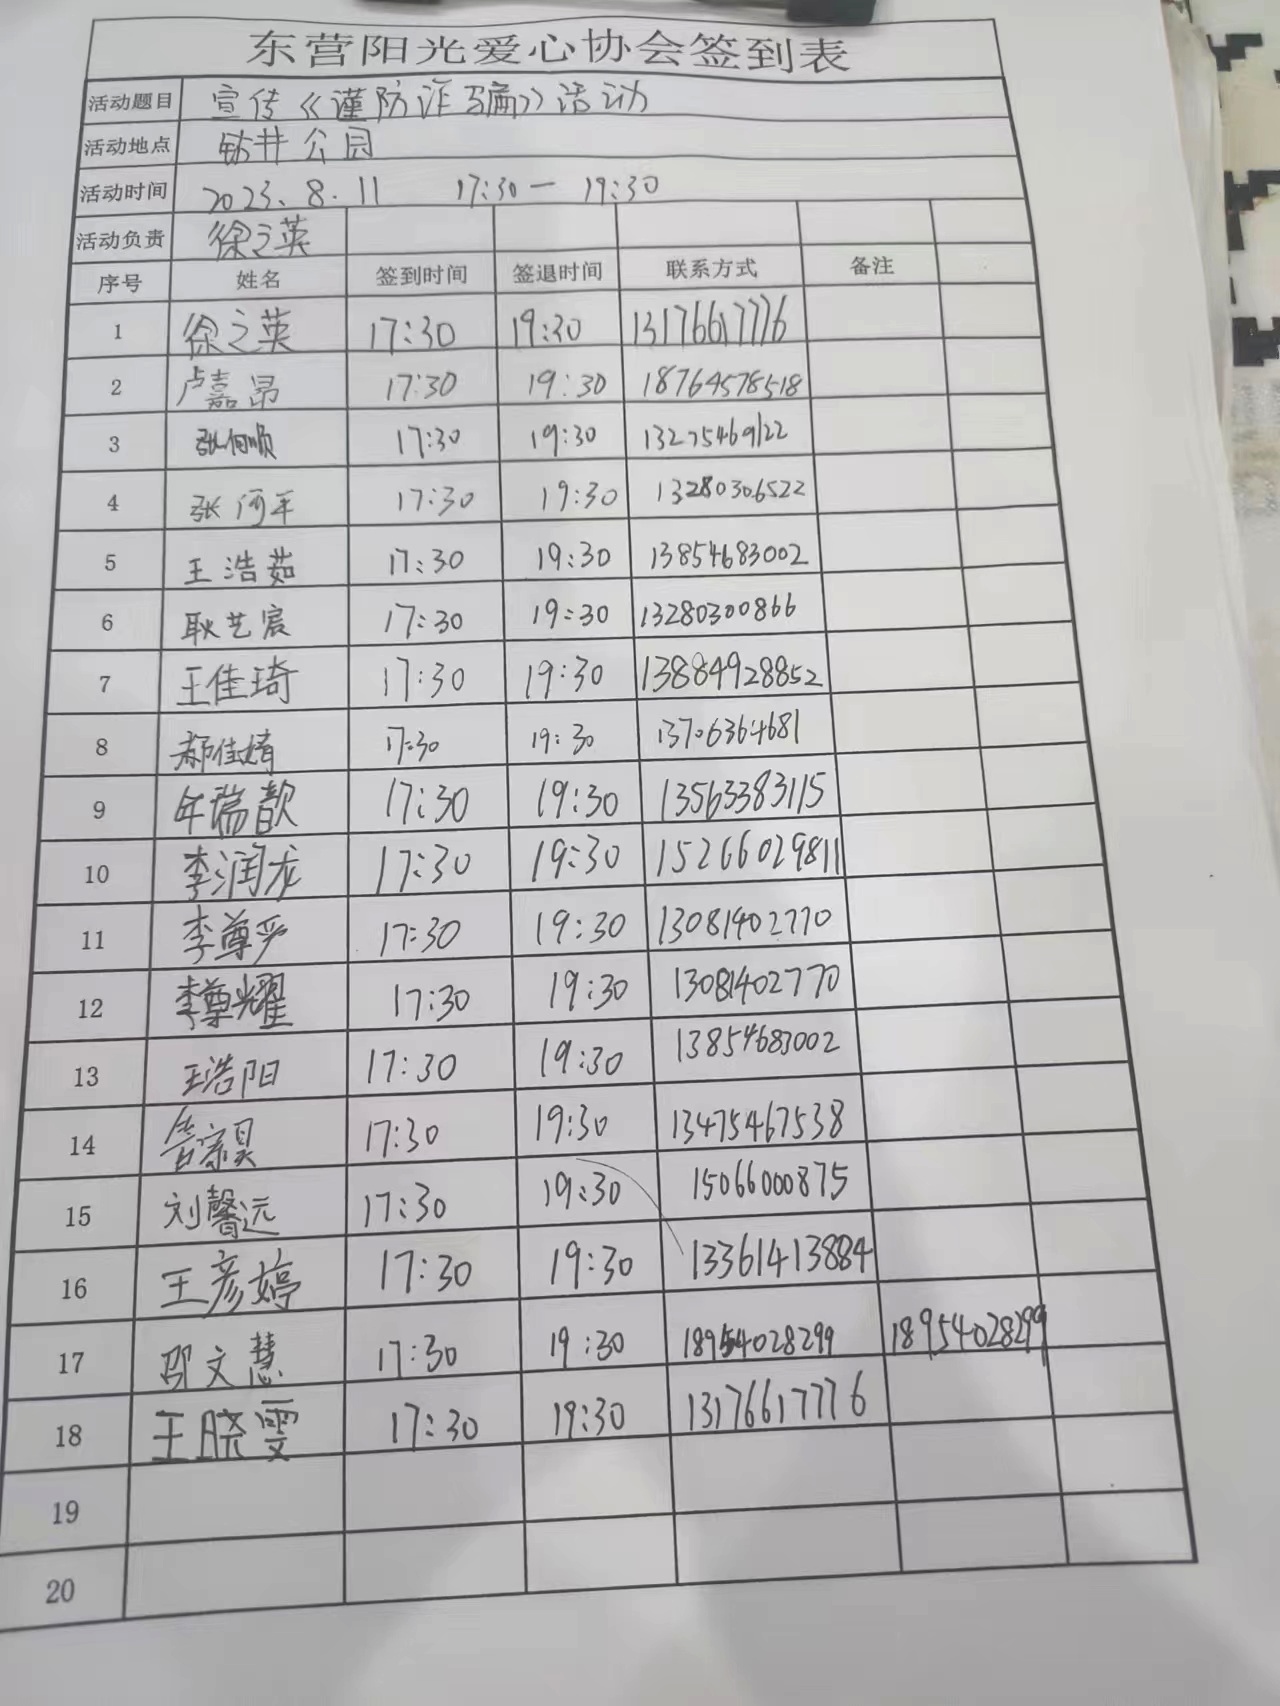 东营阳光爱心协会签到表
活动题目 宣传《谨防诈骗》活动
活动地点 钻井公园
活动时间 2023.8.11 17:30— 19:30
活动负责 徐之英
序号 姓名 签到时间 签退时间 联系方式 备注
1 徐之英 17:30 19:30 13176617776
2 卢嘉昂 17:30 19:30 18764578518
3 张何顺 17:30 19:30 13275469122
4 张河平 17:30 19:30 13280306522
5 王浩茹 17:30 19:30 13854683002
6 耿艺宸 17:30 19:30 13280300866
7 王佳琦 17:30 19:30 13884928852
8 郝佳婧 17:30 19:30 13706364681
9 年瑞歆 17:30 19:30 13563383115
10 李润龙 17:30 19:30 15266029811
11 李尊严 17:30 19:30 13081402770
12 李尊耀 17:30 19:30 13081402770
13 王浩阳 17:30 19:30 13854683002
14 17:30 19:30 13475467538
15 刘馨远 17:30 19:30 15066000875
16 王彦婷 17:30 19:30 13361413884
17 邵文慧 17:30 19:30 18954028299 18954028299
18 王晓雯 17:30 19:30 13176617776
19
20